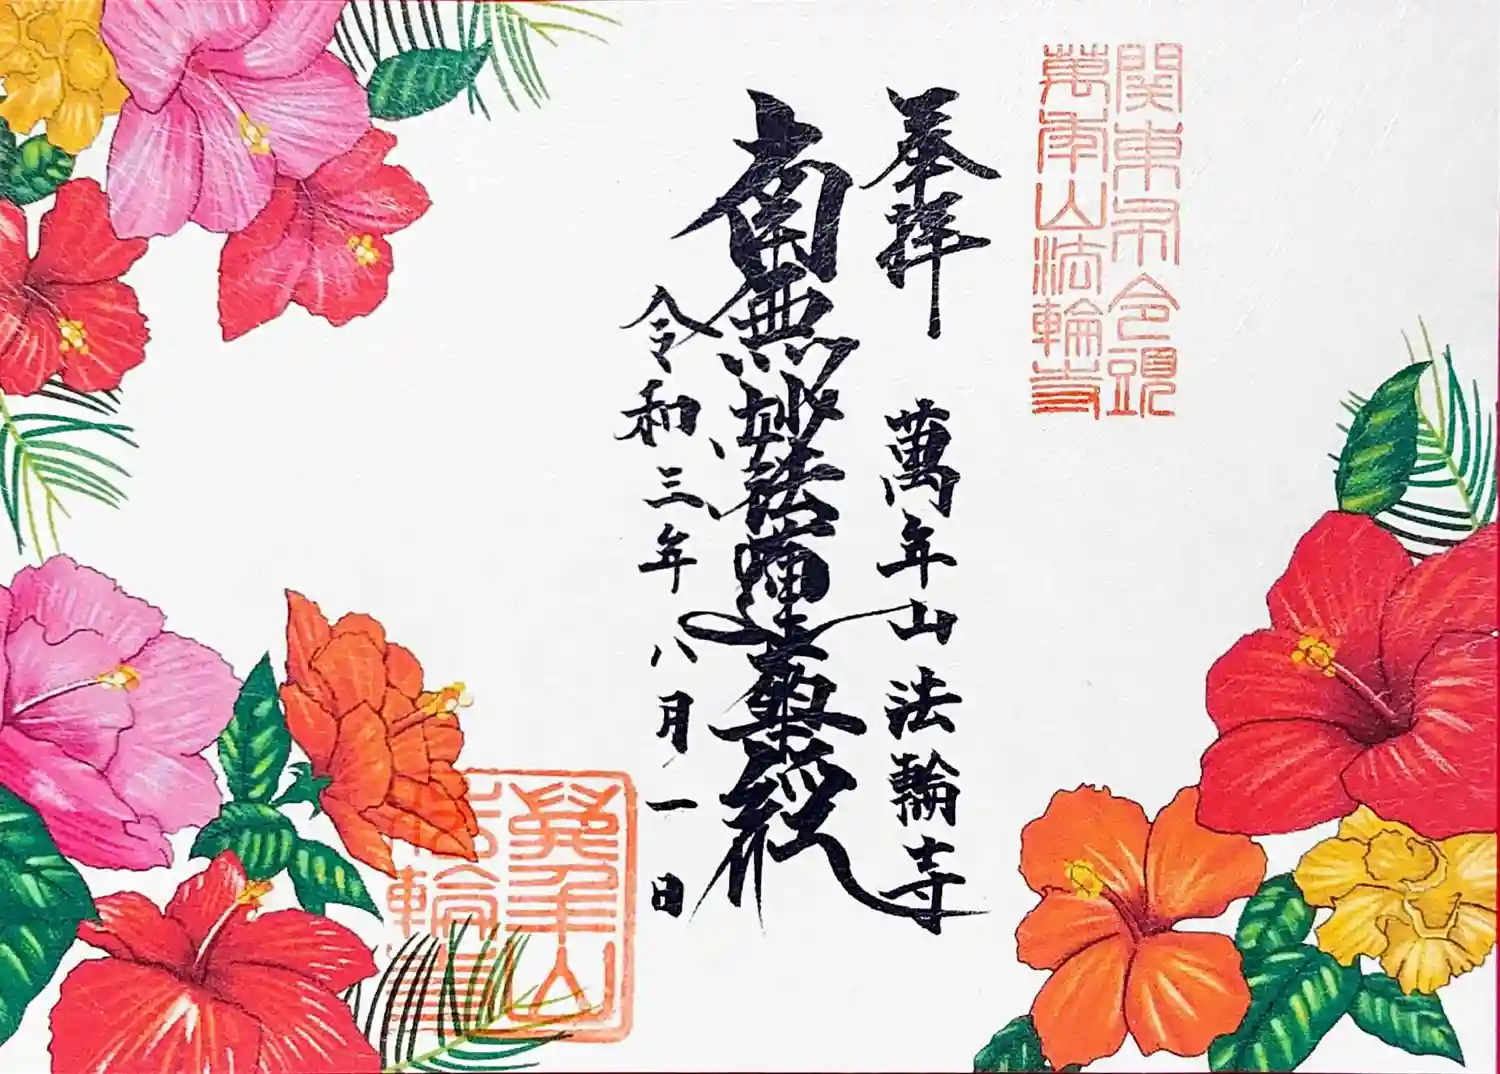 関東布令頭
萬年山法輪寺
奉拝
萬年山法輪寺
南無妙法蓮華経
令和三年八月一日
萬年山
法輪寺